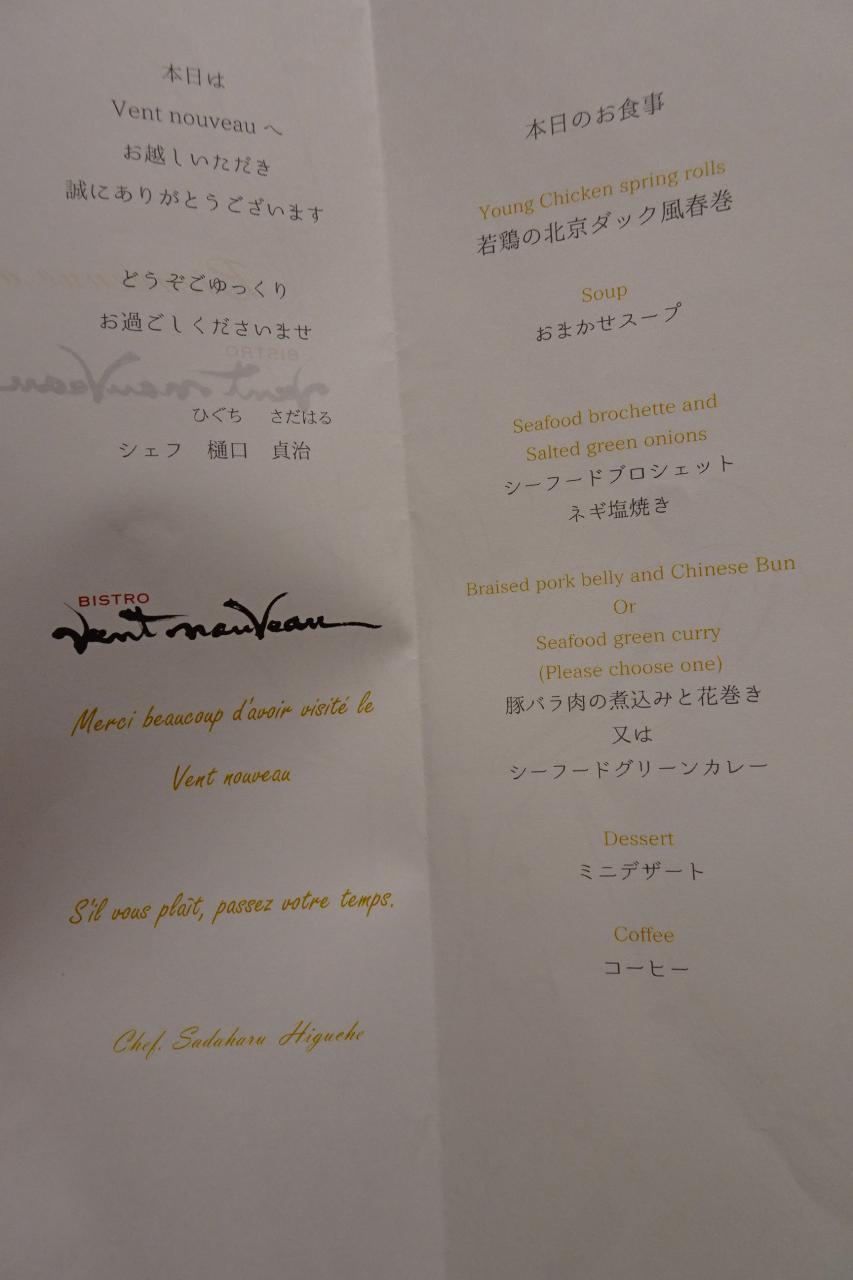 本日は
Vent nouveau へ
お越しいただき
誠にありがとうございます
どうぞごゆっくり
お過ごしくださいませ
ひぐち さだはる
シェフ 樋口 貞治
BISTRO
Vent nouveau
Merci beaucoup d'avoir visité le
Vent nouveau
S'il vous plaît, passez votre temps.
Chef. Sadaharu Higuche
本日のお食事
Young Chicken spring rolls
若鶏の北京ダック風春巻
Soup
おまかせスープ
Seafood brochette and
Salted green onions
シーフードブロシェット
ネギ塩焼き
Braised pork belly and Chinese Bun
Or
Seafood green curry
(Please choose one)
豚バラ肉の煮込みと花巻き
又は
シーフードグリーンカレー
Dessert
ミニデザート
Coffee
コーヒー